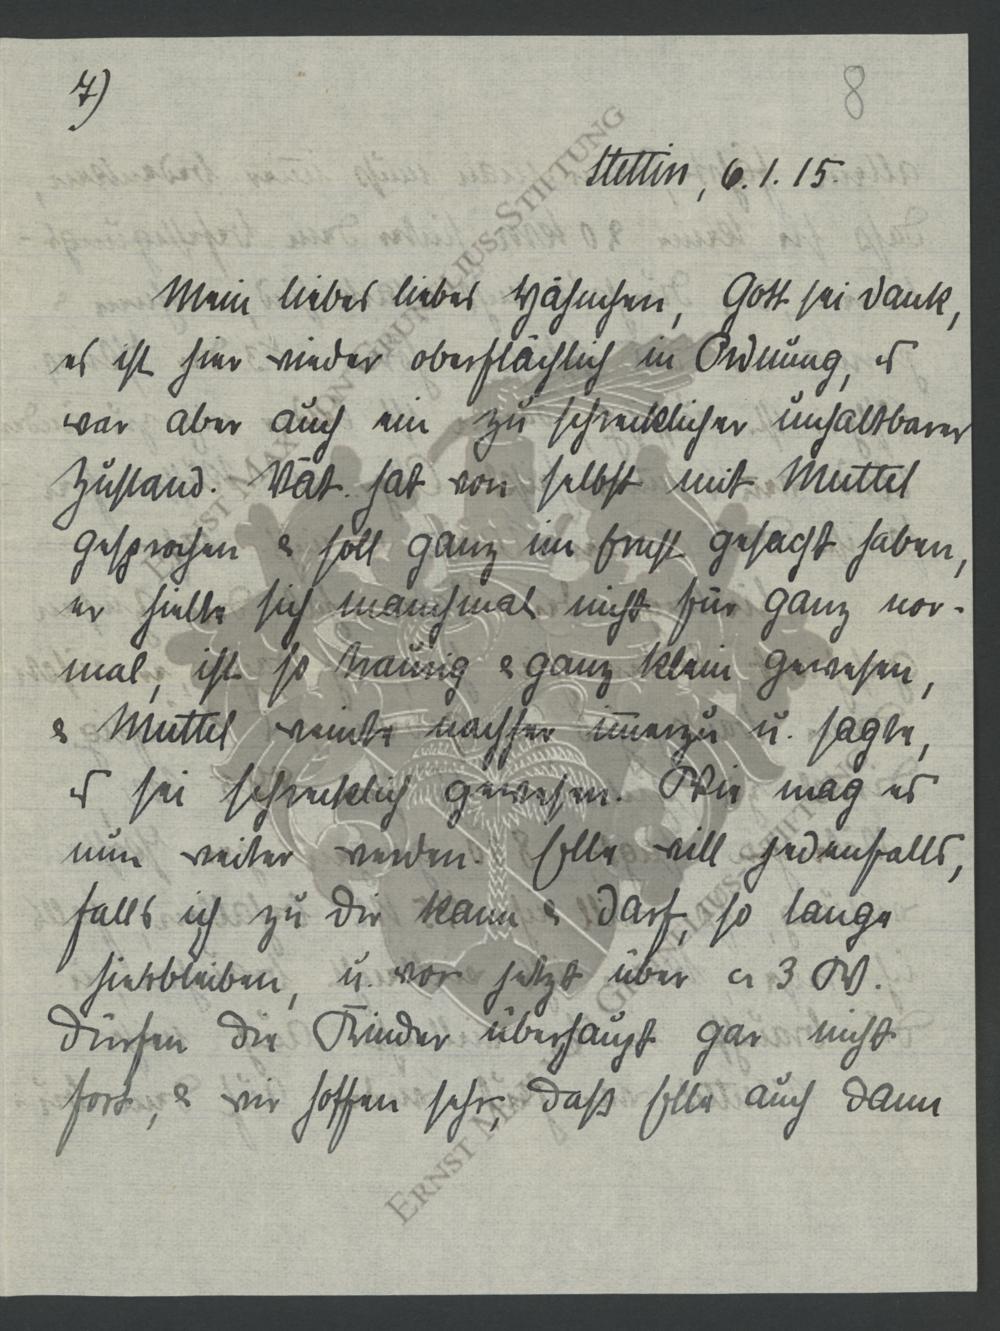 7)
8
Stettin, 6.1.15.
Mein liebes liebes Hähnchen, Gott sei dank,
es ist hier wieder oberflächlich in Ordnung, es
war aber auch ein zu schrecklicher unhaltbarer
Zustand. Vät. hat von selbst mit Muttel
gesprochen & soll ganz im Ernst gesagt haben,
er hielte sich manchmal nicht für ganz nor-
mal, ist so traurig & ganz klein gewesen,
& Muttel weinte nachher immerzu u. sagte,
es sei schrecklich gewesen. Wie mag es
nun weiter werden. Elle will jedenfalls,
falls ich zu Dir kann & darf, so lange
hierbleiben, u. vor jetzt über 3 W.
dürfen die Kinder überhaupt gar nicht
fort, & wir hoffen sehr, daß Elle auch dann